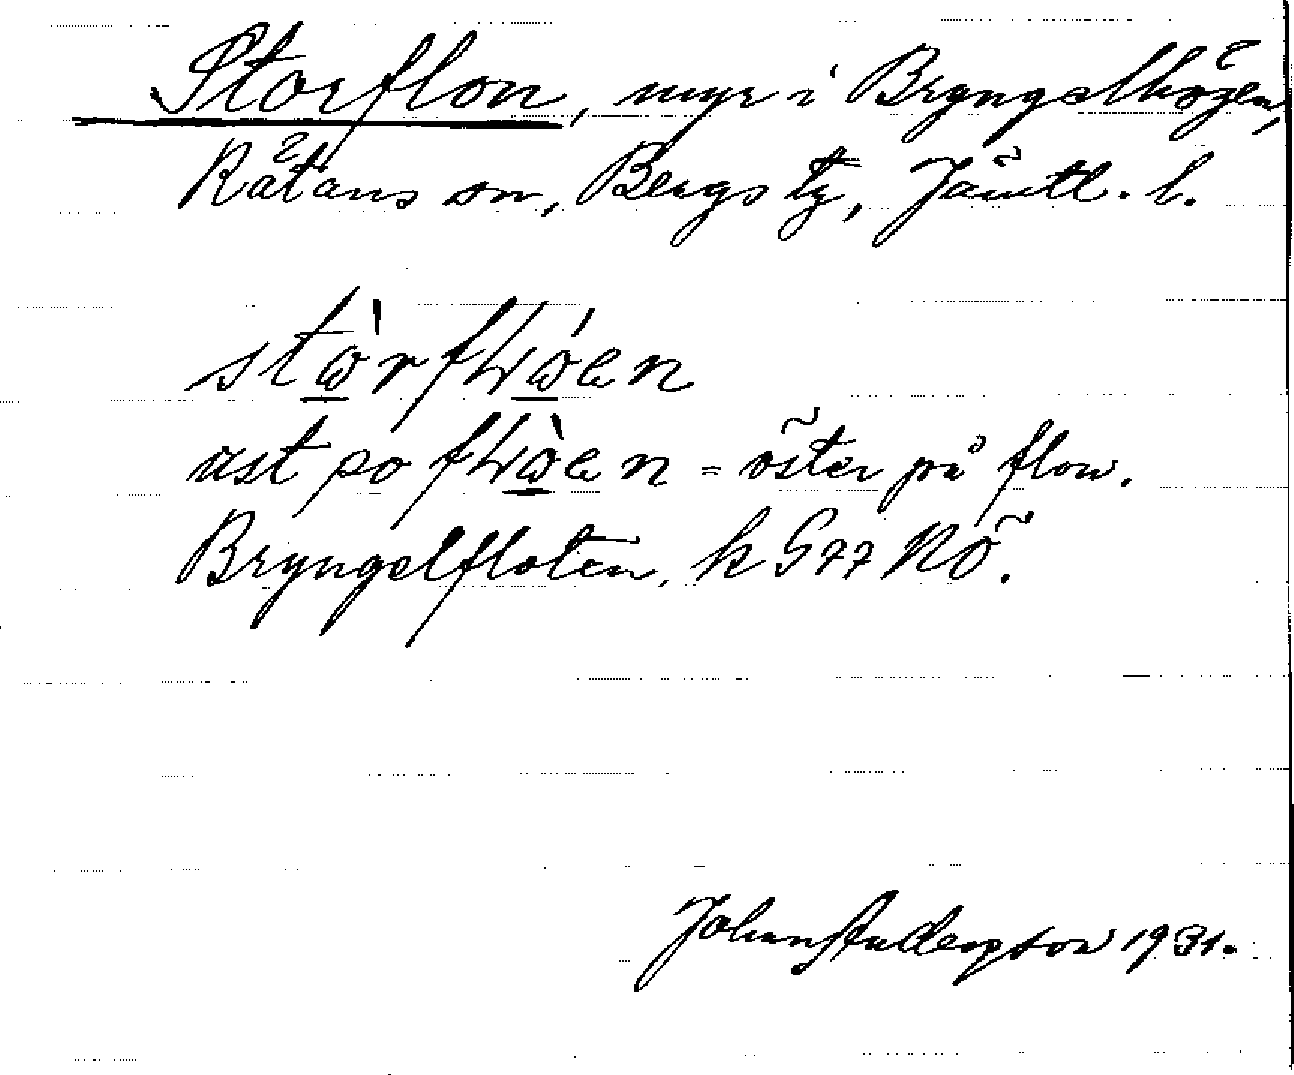 Storflon, myr i Bryngelhögen,
Rätans sn, Bergs tg, Jämtl. l.
stὼ̲rflώ̲en
ust po flὼ̲en = öster på flon.
Bryngelfloten, k G77 NÖ.
Johan Anderzson 1931.